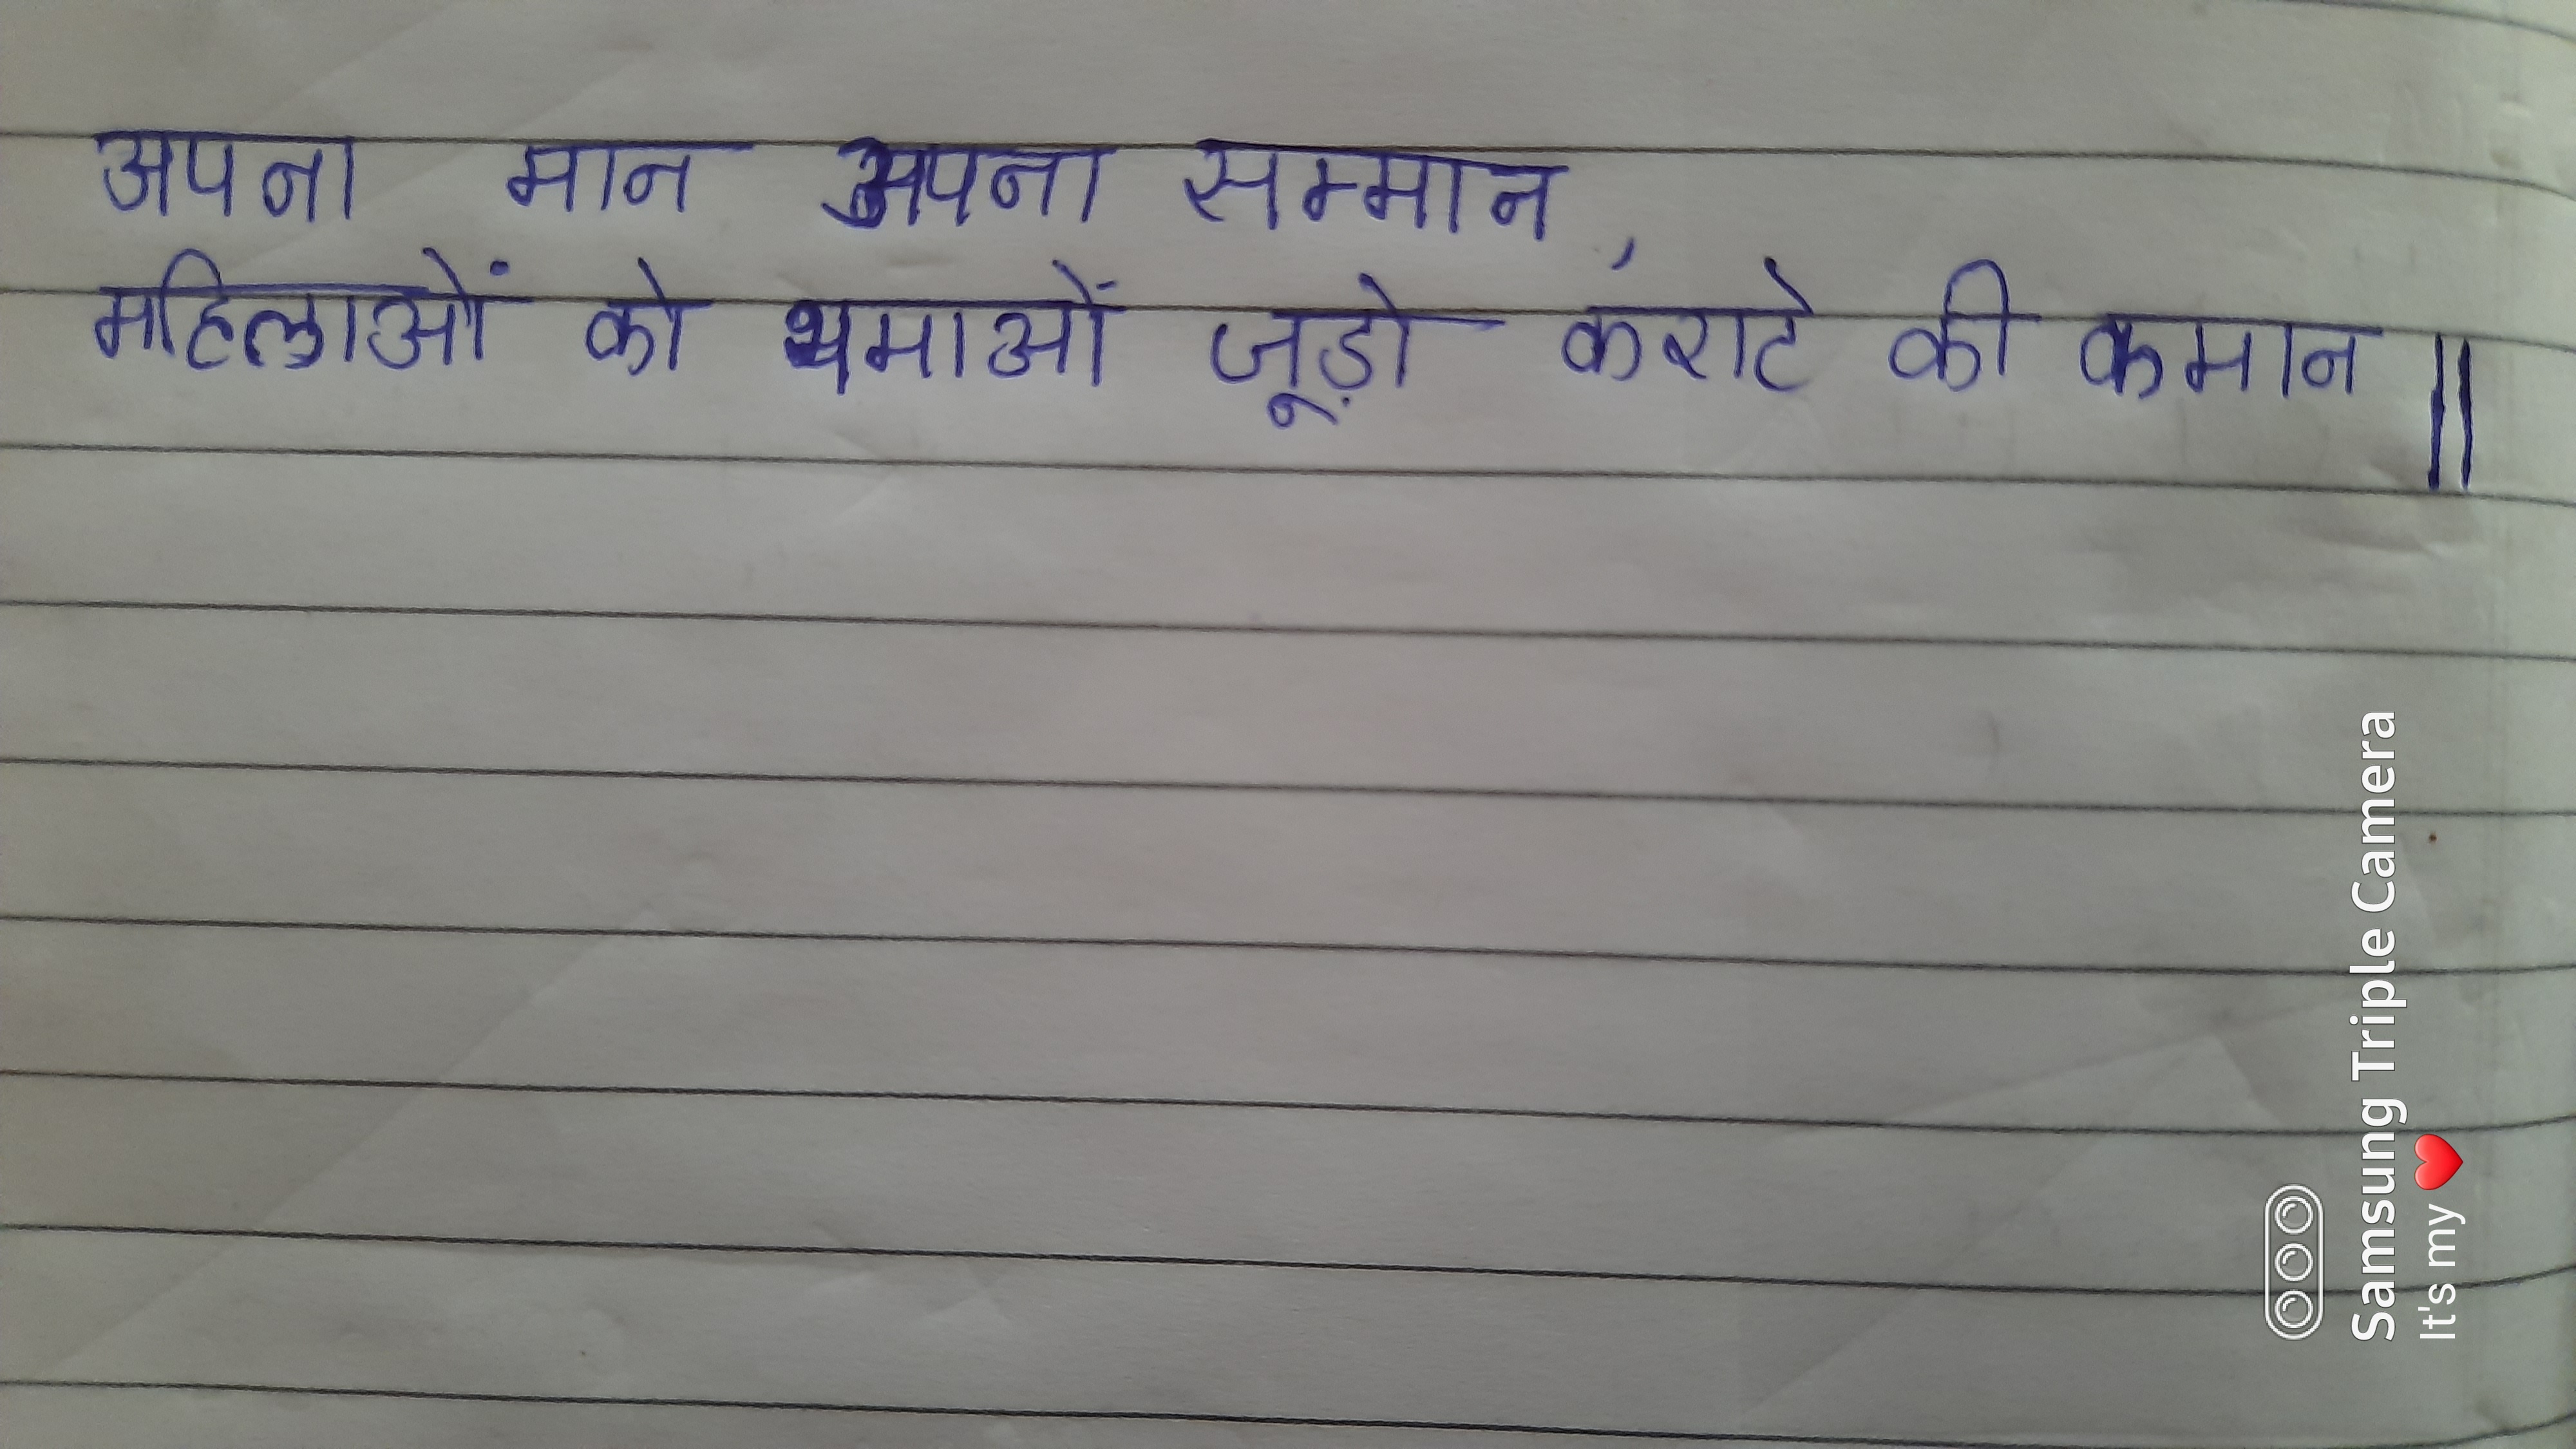 अपना मान अपना सम्मान,
महिलाओं को थमाओं जूड़ो कराटे की कमान ||
Samsung Triple Camera
It's my ❤️